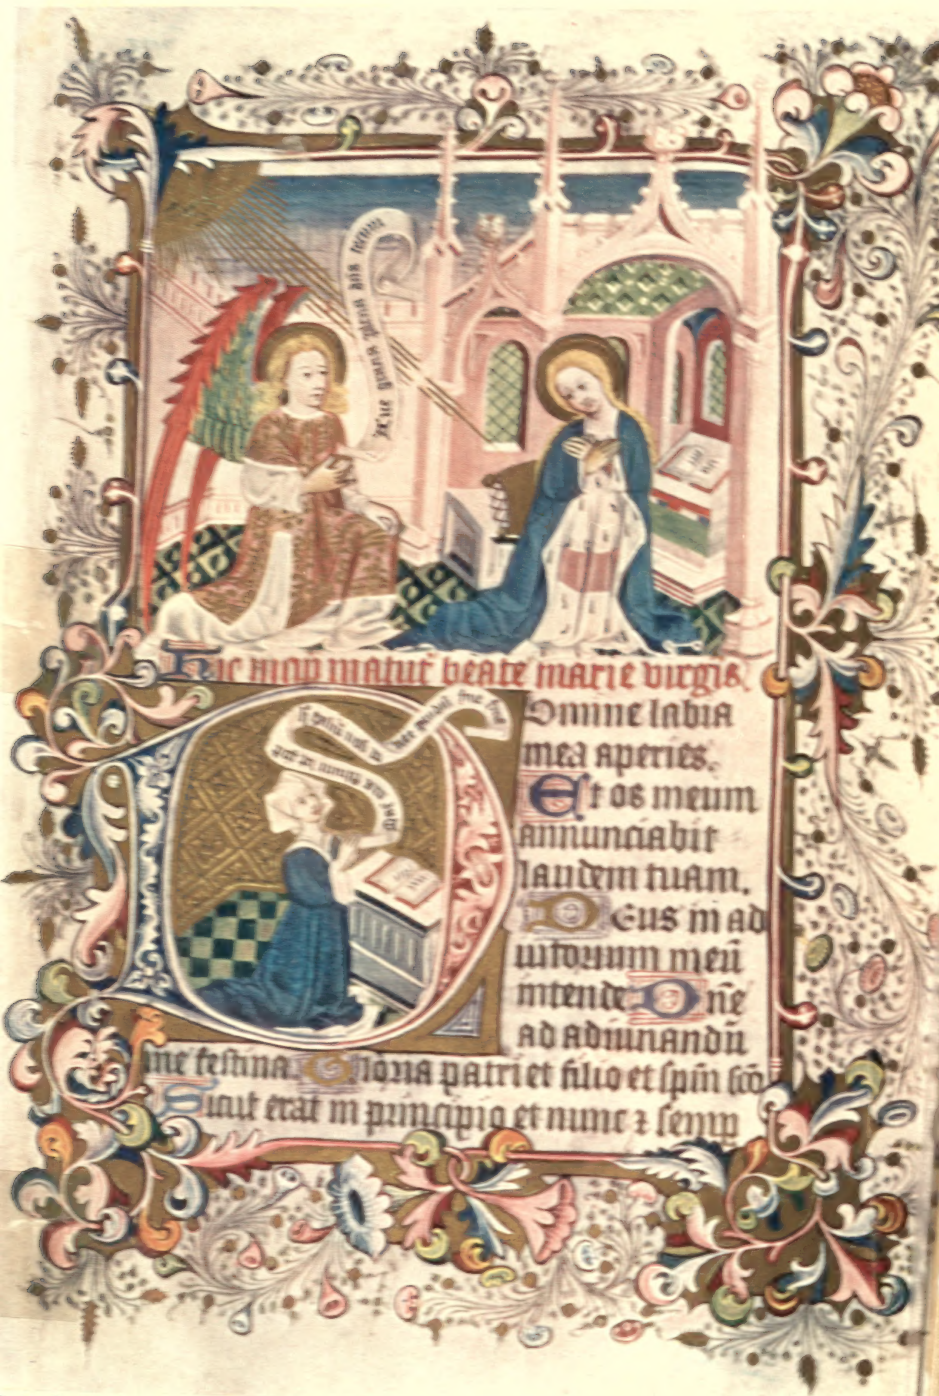 Aue gracia plena dns tecum
Hic incip matut beate marie virgis
Domine labia
mea aperies.
Et os meum
annunciabit
laudem tuam.
Deus in ad
iutorium meū
intende Dn̄e
ad adiuuandū
me festina. Gloria patri et filio et spūi scō
Sicut erat in principio et nunc ⁊ semp